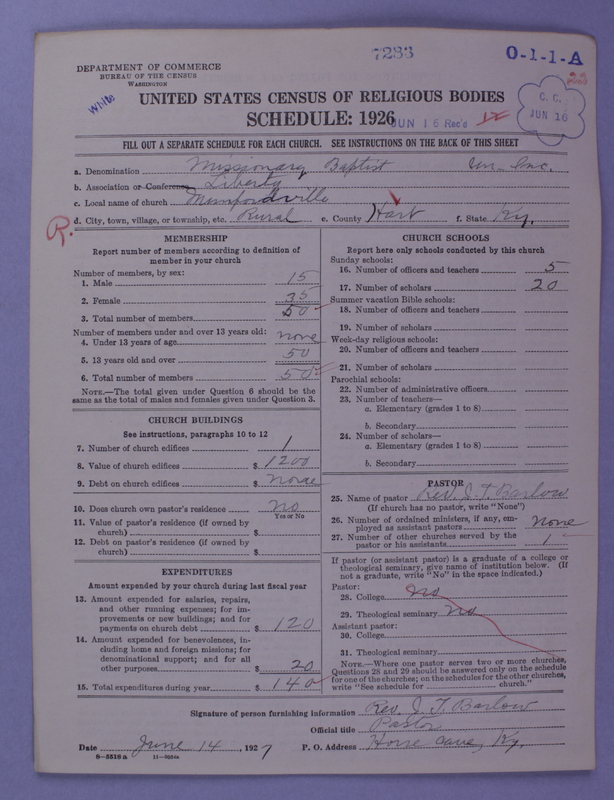 7233
O-1-1-A
22
DEPARTMENT OF COMMERCE
BUREAU OF THE CENSUS
WASHINGTON
White
C. C.
JUN 16
UNITED STATES CENSUS OF RELIGIOUS BODIES
SCHEDULE: 1926
JUN 16 Rec'd
FILL OUT A SEPARATE SCHEDULE FOR EACH CHURCH. SEE INSTRUCTIONS ON THE BACK OF THIS SHEET
a. Denomination Missionary Baptist Un-Inc.
b. Association or Conference Liberty
c. Local name of church Munfordville
d. City, town, village, or township, etc. Rural e. County Hart f. State Ky.
R.
MEMBERSHIP
Report number of members according to definition of
member in your church
Number of members, by sex:
1. Male 15
2. Female 35
3. Total number of members 50
Number of members under and over 13 years old:
4. Under 13 years of age none
5. 13 years old and over 50
6. Total number of members 50
NOTE.—The total given under Question 6 should be the
same as the total of males and females given under Question 3.
CHURCH BUILDINGS
See instructions, paragraphs 10 to 12
7. Number of church edifices 1
8. Value of church edifices $ 1200
9. Debt on church edifices $ none
10. Does church own pastor's residence No
Yes or No
11. Value of pastor's residence (if owned by
church) $
12. Debt on pastor's residence (if owned by
church) $
EXPENDITURES
Amount expended by your church during last fiscal year
13. Amount expended for salaries, repairs,
and other running expenses; for im-
provements or new buildings; and for
payments on church debt $ 120
14. Amount expended for benevolences, in-
cluding home and foreign missions; for
denominational support; and for all
other purposes $ 20
15. Total expenditures during year $ 140
CHURCH SCHOOLS
Report here only schools conducted by this church
Sunday schools:
16. Number of officers and teachers 5
17. Number of scholars 20
Summer vacation Bible schools:
18. Number of officers and teachers
19. Number of scholars
Week-day religious schools:
20. Number of officers and teachers
21. Number of scholars
Parochial schools:
22. Number of administrative officers
23. Number of teachers—
a. Elementary (grades 1 to 8)
b. Secondary
24. Number of scholars—
a. Elementary (grades 1 to 8)
b. Secondary
PASTOR
25. Name of pastor Rev. J. T. Barlow
(If church has no pastor, write "None")
26. Number of ordained ministers, if any, em-
ployed as assistant pastors none
27. Number of other churches served by the
pastor or his assistants 1
If pastor (or assistant pastor) is a graduate of a college or
theological seminary, give name of institution below. (If
not a graduate, write "No" in the space indicated.)
Pastor:
28. College no
29. Theological seminary no
Assistant pastor:
30. College
31. Theological seminary
NOTE.—Where one pastor serves two or more churches,
Questions 28 and 29 should be answered only on the schedule
for one of the churches; on the schedules for the other churches,
write "See schedule for church."
Signature of person furnishing information Rev. J. T. Barlow
Official title Pastor
Date June 14, 1927 P. O. Address Horse Cave, Ky.
8—5518a 11—9054a